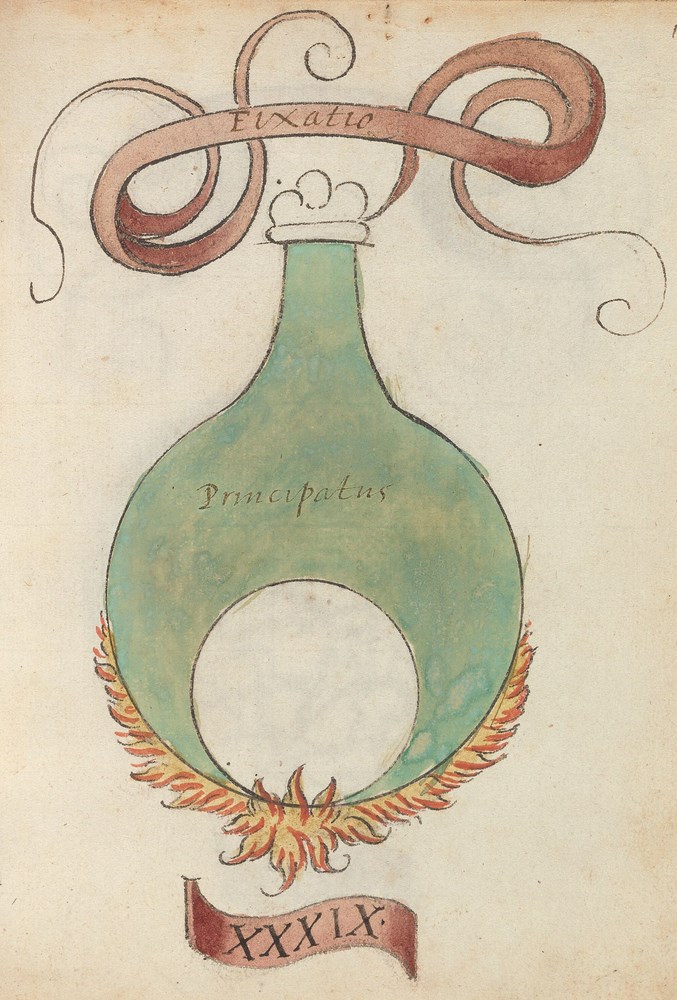 Fixatio
Principatus
XXXIX.